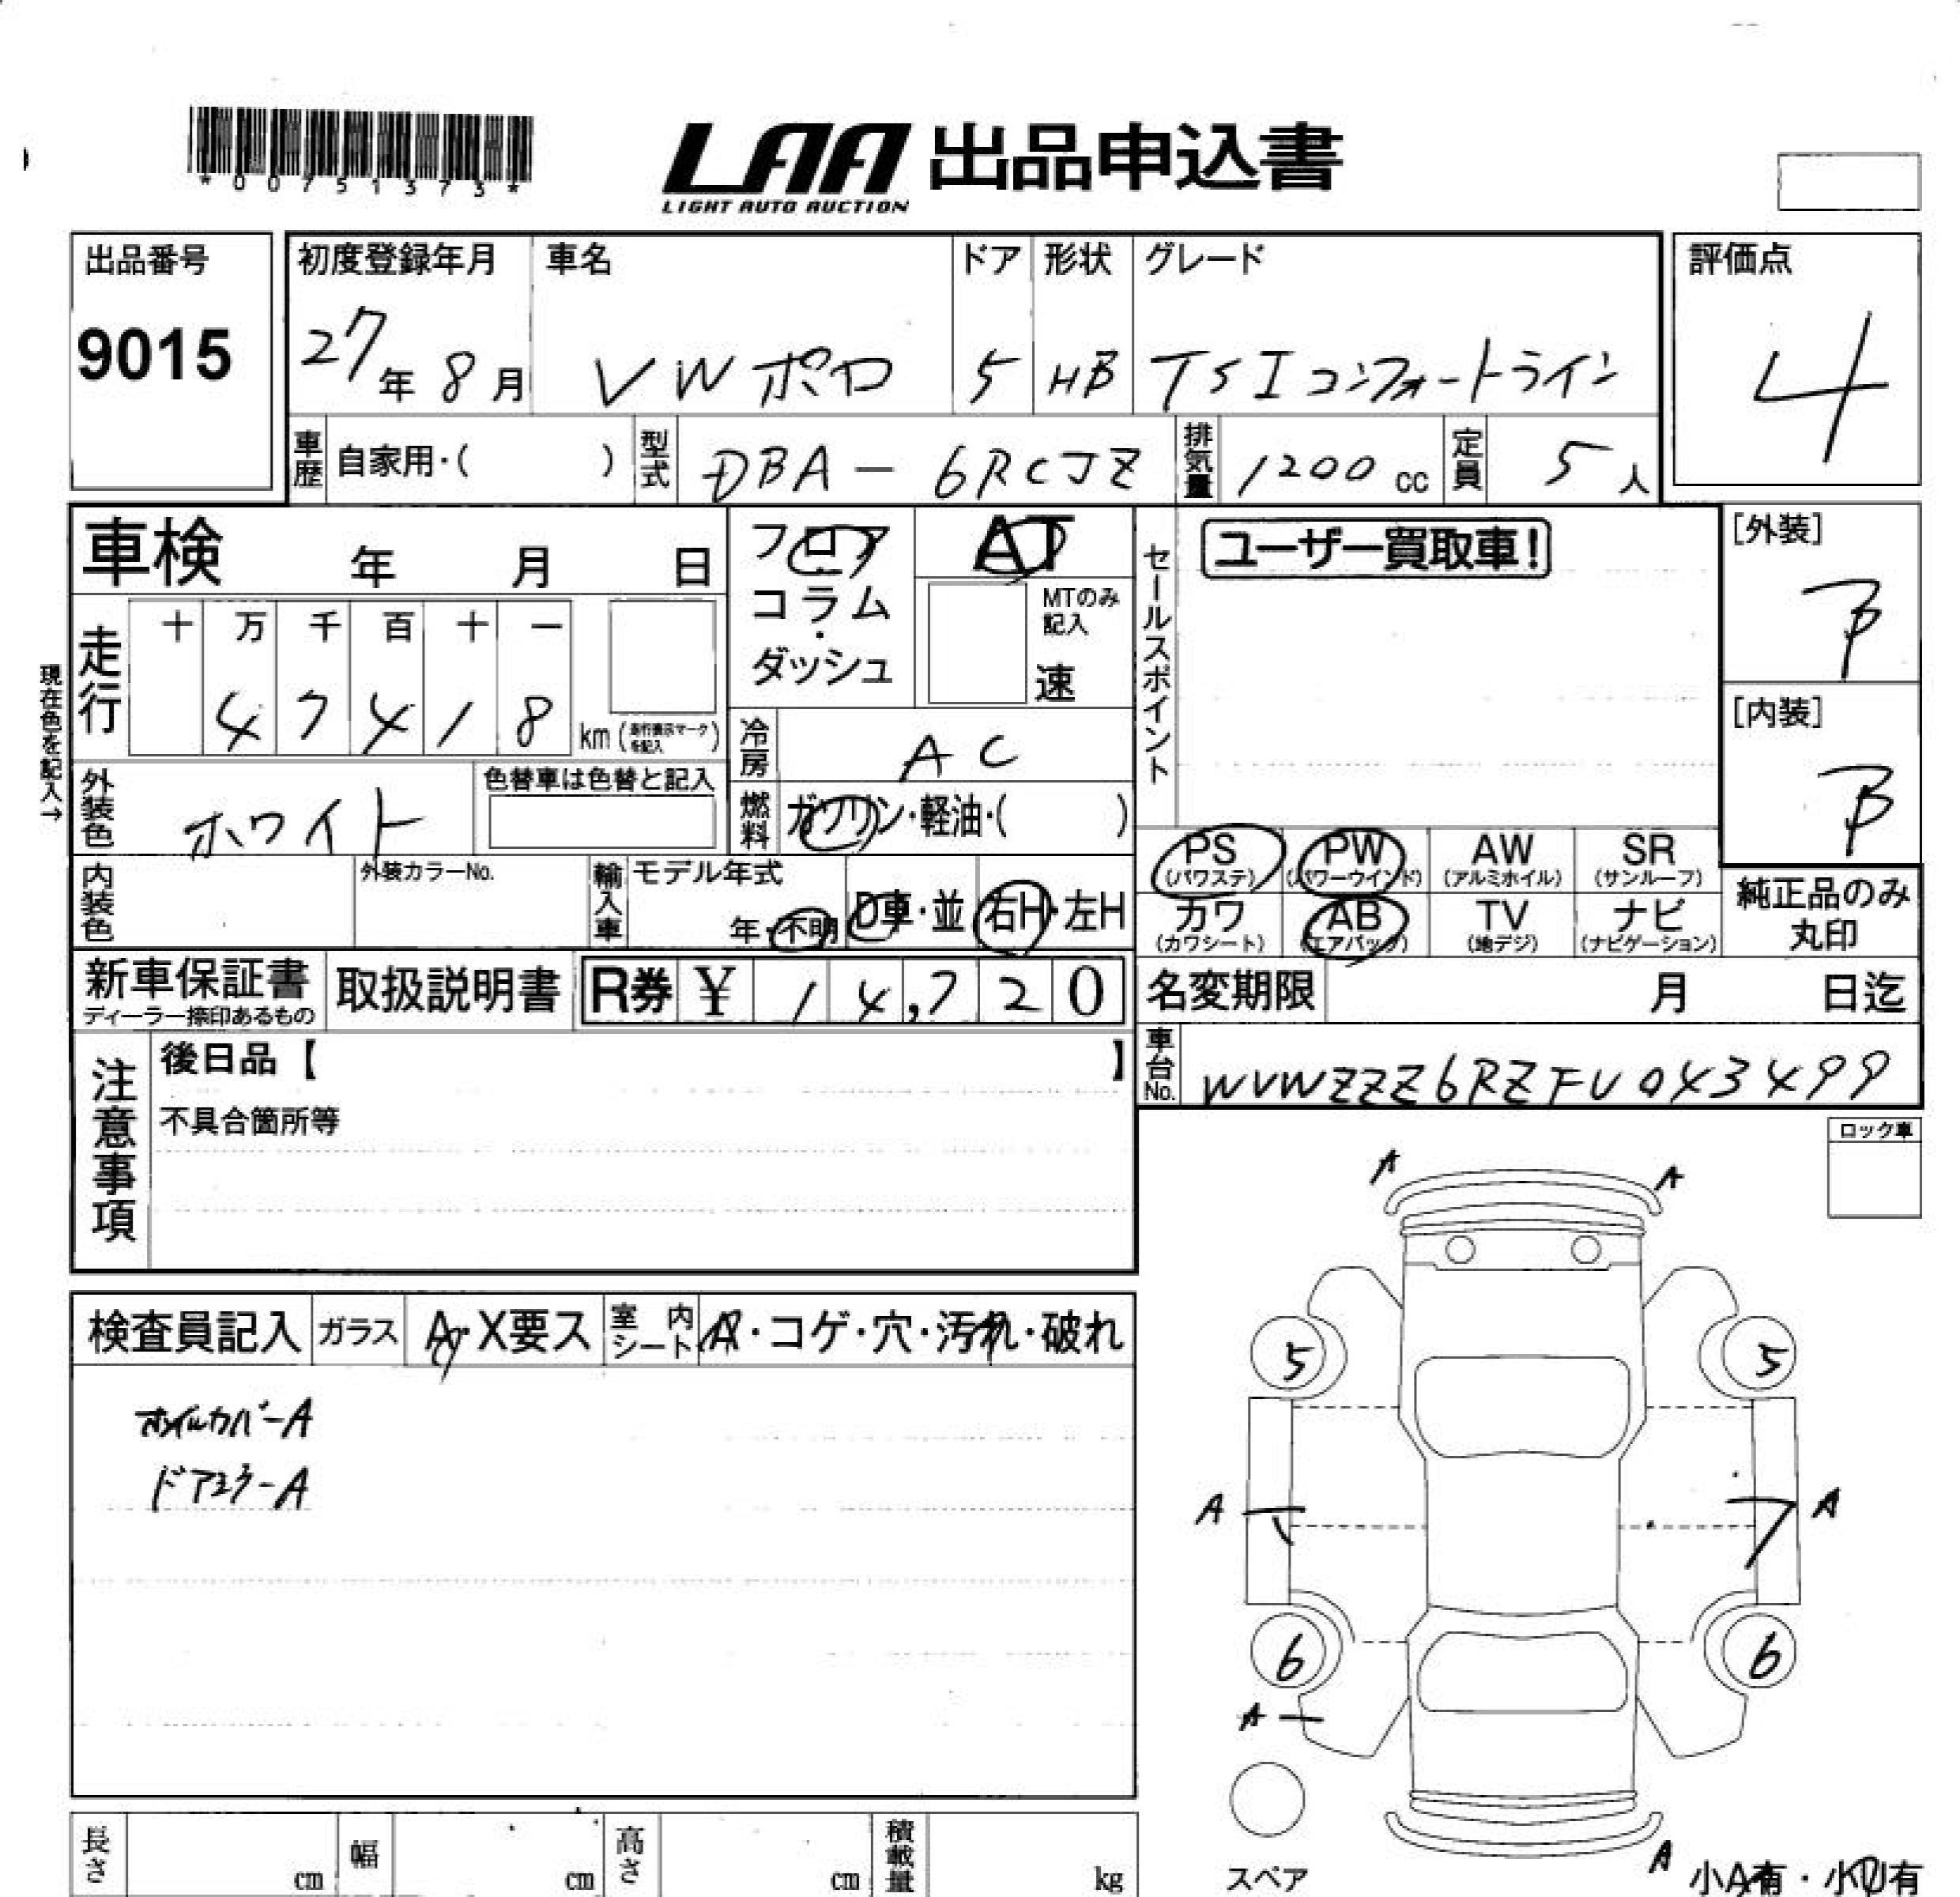 *00751373*
LAA 出品申込書
LIGHT AUTO AUCTION
出品番号
9015
初度登録年月
27年 8月
車名
VW ポロ
ドア
5
形状
HB
グレード
TSI コンフォートライン
評価点
4
車歴 自家用・( )
型式 DBA-6RCJZ
排気量 1200 cc
定員 5人
車検 年 月 日
フロア
コラム
・
ダッシュ
AT
MTのみ記入
速
セールスポイント
ユーザー買取車!
[外装]
B
[内装]
B
現在色を記入→
走行
十 万 千 百 十 一
4 7 4 1 8 km
冷房 AC
燃料 ガソリン・軽油・( )
外装色 ホワイト
色替車は色替と記入
内装色
外装カラーNo.
輸入車
モデル年式
年・不明
D車・並
右H・左H
PS (パワステ)
PW (パワーウインド)
AW (アルミホイル)
SR (サンルーフ)
カワ (カワシート)
AB (エアバック)
TV (地デジ)
ナビ (ナビゲーション)
純正品のみ丸印
新車保証書
ディーラー捺印あるもの
取扱説明書
R券 ¥ 14,720
名変期限 月 日迄
車台No. WVWZZZ6RZFU043499
注意事項
後日品【 】
不具合箇所等
ロック車
検査員記入
ガラス A・X要ス
室内シート A・コゲ・穴・汚れ・破れ
ホイルカバーA
ドアミラーA
A A
5 5
A A
6 6
A
A
スペア
小A有・小U有
長さ cm
幅 cm
高さ cm
積載量 kg